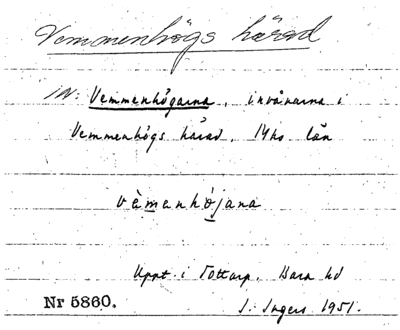 Vemmenhögs härad
IN: Vemmenhögarna, invånarna i
Vemmenhögs härad. Mhs län
vàmanhöjana
Uppt. i Tottarp. Bara hd
Nr 5860. I. Ingers 1951.